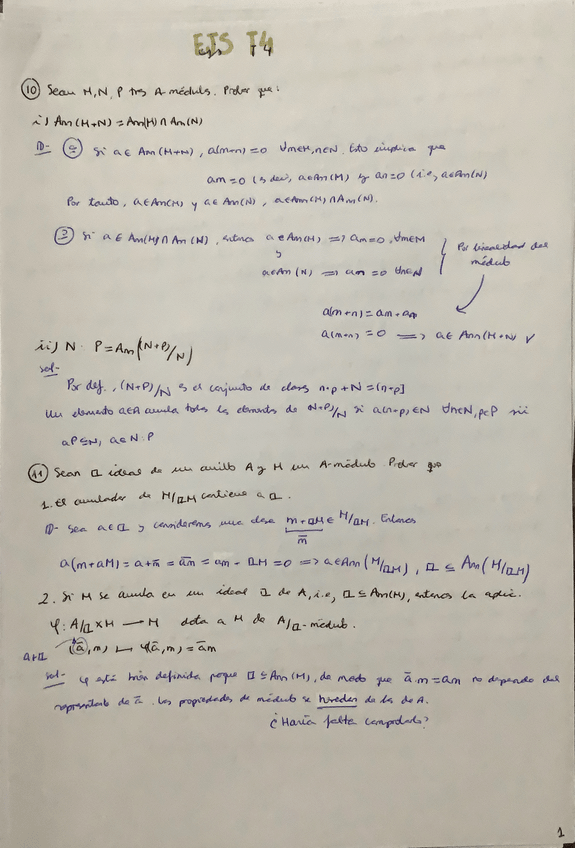 EJS T4
⑩ Sean M, N, P tres A-módulos. Probar que:
i) Ann(M+N) = Ann(M) ∩ Ann(N)
D- ⊆ Si a∈Ann(M+N), a(m+n)=0 ∀m∈M, n∈N. Esto implica que
am=0 (es decir, a∈Ann(M) y an=0 (i.e, a∈Ann(N)
Por tanto, a∈Ann(M) y a∈Ann(N), a∈Ann(M)∩Ann(N).
⊇ Si a∈Ann(M)∩Ann(N), entonces a∈Ann(M) ⟹ am=0, ∀m∈M
y
a∈Ann(N) ⟹ an=0 ∀n∈N
Por linealidad del módulo
a(m+n)=am+an
a(m+n)=0 ⟹ a∈Ann(M+N) ✓
ii) N:P=Ann((N+P)/N)
sol-
Por def., (N+P)/N es el conjunto de clases n+p+N=[n+p]
Un elemento a∈A anula todos los elementos de N+P/N si a(n+p)∈N ∀n∈N, p∈P sii
aP⊆N, a∈N:P
⑪ Sean 𝔞 ideal de un anillo A y M un A-módulo. Probar que
1. El anulador de M/𝔞M contiene a 𝔞.
D- Sea a∈𝔞 y consideremos una clase m+𝔞M∈M/𝔞M. Entonces
m̄
a(m+aM)=a+m̄=am̄=am+𝔞M=0 ⟹ a∈Ann(M/𝔞M), 𝔞⊆Ann(M/𝔞M)
2. Si M se anula en un ideal 𝔞 de A, i.e, 𝔞⊆Ann(M), entonces la aplic.
φ: A/𝔞×M → M dota a M de A/𝔞-módulo.
(ā, m) ↦ φ(ā, m)=ām
A+𝔞
sol- φ está bien definida porque 𝔞⊆Ann(M), de modo que ā m=am no depende del
representante de ā. Las propiedades de módulo se heredan de las de A.
¿Haría falta comprobarlo?
1